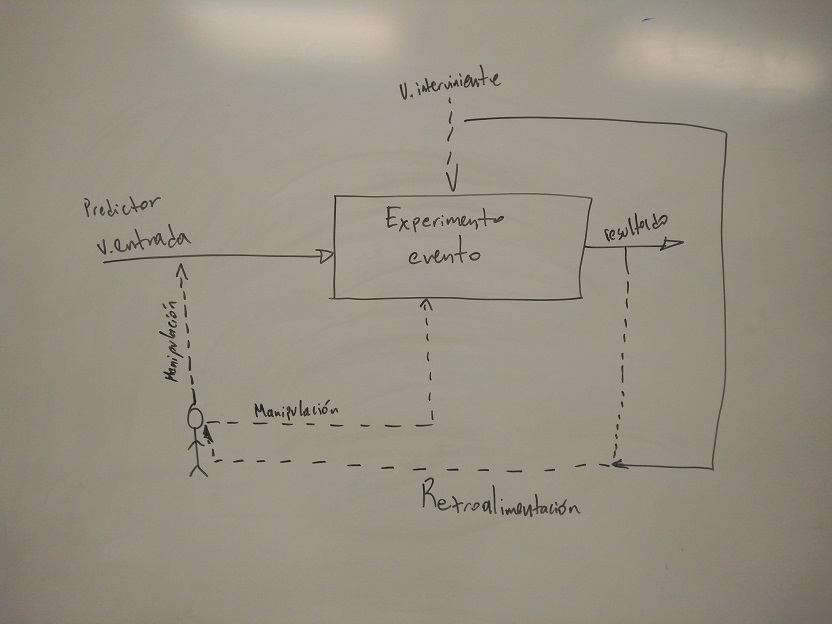 V. interviniente
Predictor
v. entrada
Experimento
evento
resultado
Manipulación
Manipulación
Retroalimentación